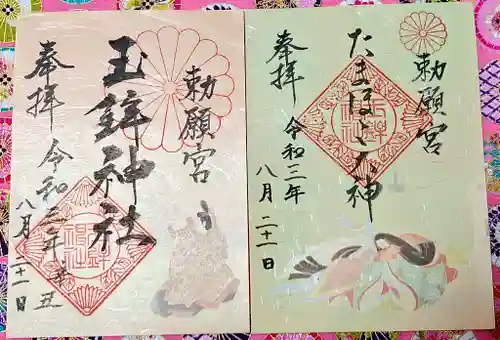 勅願宮
玉鉾神社
奉拝
令和三年辛丑
八月二十一日
勅願宮
たまほこ神
奉拝
令和三年
八月二十一日